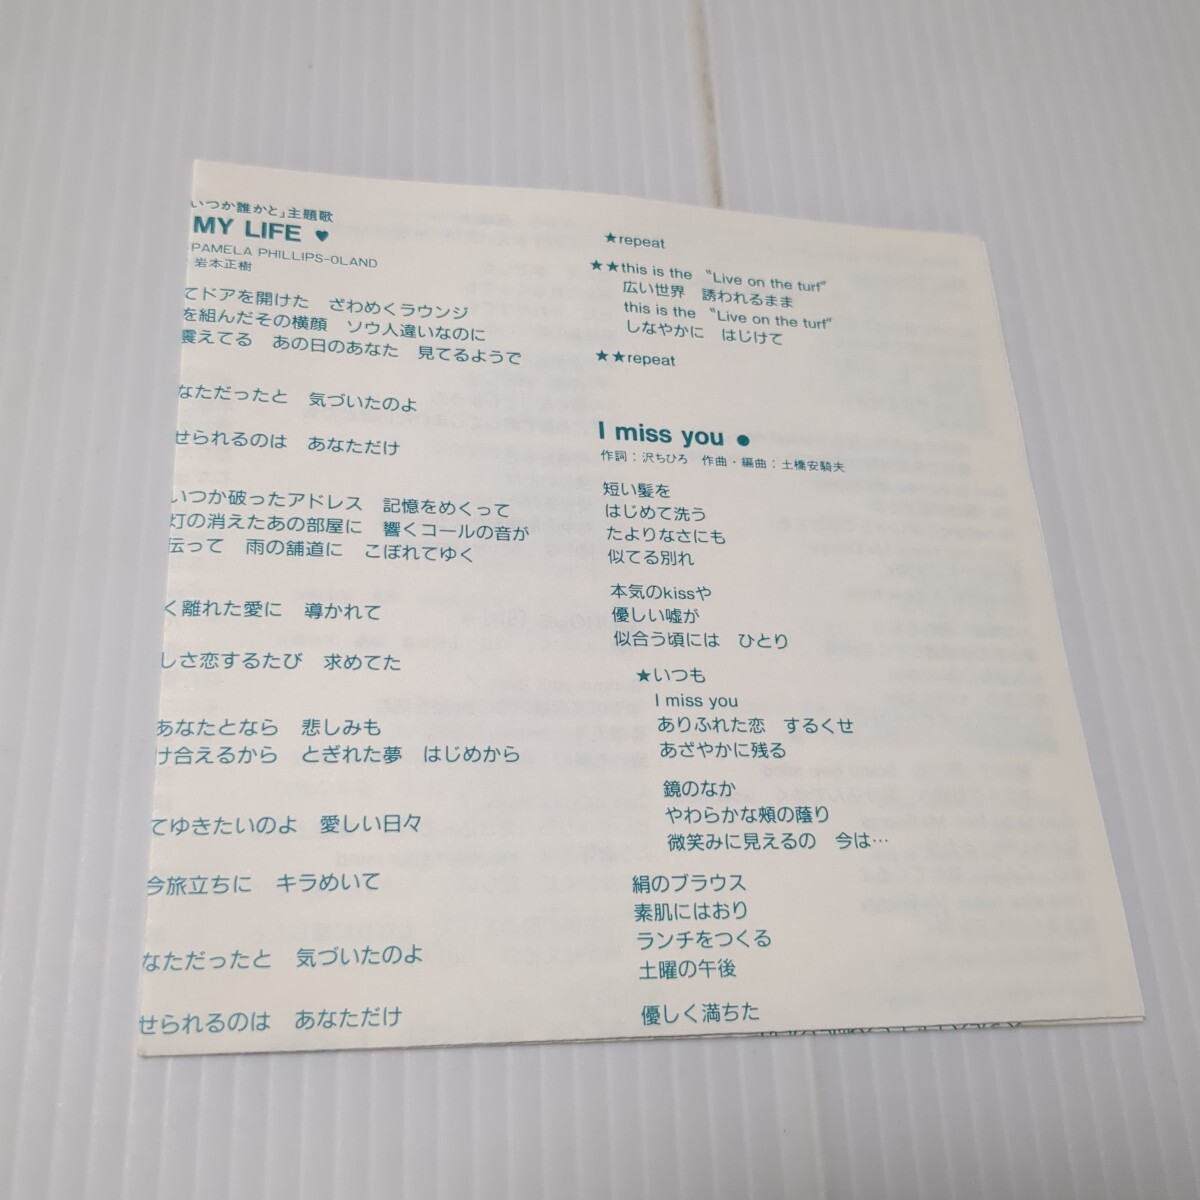 いつか誰かと」主題歌
MY LIFE ♥
PAMELA PHILLIPS-OLAND
岩本正樹
てドアを開けた　ざわめくラウンジ
を組んだその横顔　ソウ人違いなのに
震えてる　あの日のあなた　見てるようで
なただったと　気づいたのよ
せられるのは　あなただけ
いつか破ったアドレス　記憶をめくって
灯の消えたあの部屋に　響くコールの音が
伝って　雨の舗道に　こぼれてゆく
く離れた愛に　導かれて
しさ恋するたび　求めてた
あなたとなら　悲しみも
け合えるから　とぎれた夢　はじめから
てゆきたいのよ　愛しい日々
今旅立ちに　キラめいて
なただったと　気づいたのよ
せられるのは　あなただけ
★repeat
★★this is the “Live on the turf”
広い世界　誘われるまま
this is the “Live on the turf”
しなやかに　はじけて
★★repeat
I miss you ●
作詞：沢ちひろ　作曲・編曲：土橋安騎夫
短い髪を
はじめて洗う
たよりなさにも
似てる別れ
本気のkissや
優しい嘘が
似合う頃には　ひとり
★いつも
I miss you
ありふれた恋　するくせ
あざやかに残る
鏡のなか
やわらかな頰の蔭り
微笑みに見えるの　今は…
絹のブラウス
素肌にはおり
ランチをつくる
土曜の午後
優しく満ちた